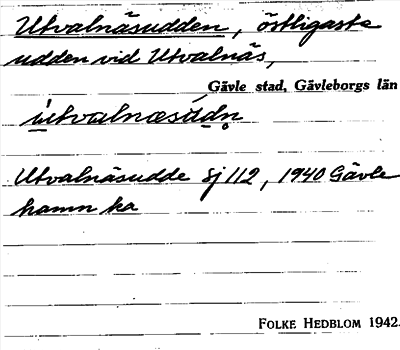 Utvalnäsudden, östligaste
udden vid Utvalnäs,
Gävle stad, Gävleborgs län
Utvalnäsudde Sj 112, 1940 Gävle
hamn ka
FOLKE HEDBLOM 1942.